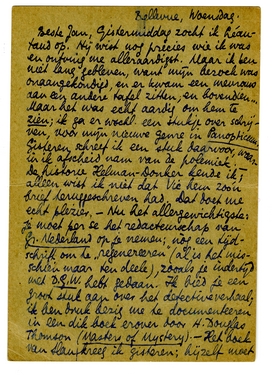 Bellevue, Woensdag.
Beste Jan, Gistermiddag zocht ik Greshoff
op. Hij wist nog precies wie ik was
en ontving me allerraardigst. Maar ik ben
niet lang gebleven, want mijn bezoek was
onaangekondigd, en er kwam een mevrouw
aan een andere tafel zitten, en bovendien...
Maar het was echt aardig om hem te
zien; ik ga er wschl. een stukje over schrij-
ven, voor mijn nieuwe genre in Panopticum.
Gisteren schreef ik een stukje daarvoor, waar-
in ik afscheid nam van de polemiek.
de historie Helman-Donker kende ik;
alleen wist ik niet dat Vic hem zoo'n
brief teruggeschreven had. Dat doet me
echt plezier. — Nu het allergewichtigste:
Je moet per se het redacteurschap van
Gr. Nederland op je nemen; nog een tijd-
schrift om te "regenereeren" (al is het mis-
schien maar ten deele), zooals je indertijd
met D.G.W. hebt gedaan. Ik bied je een
groot stuk aan over het detectiveverhaal;
ik ben druk bezig me te documenteeren
in een dik boek erover door H. Douglas
Thomson (Masters of Mystery). — Het boek
van kreeg ik gisteren; hijzelf moet